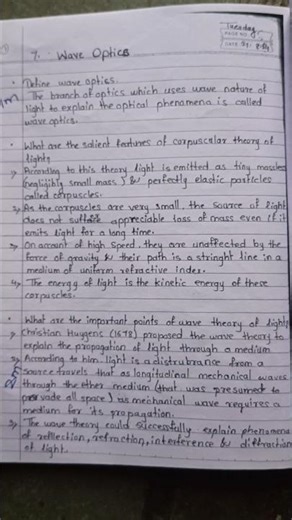 Tuesday
7. Wave Optics
• Define wave optics.
The branch of optics which uses wave nature of
light to explain the optical phenomena is called
wave optics.
• What are the salient features of corpuscular theory of
light?
1) According to this theory light is emitted as tiny massles
(negligibly small mass) & perfectly elastic particles
called corpuscles.
2) As the corpuscles are very small, the source of light
does not suffer appreciable loss of mass even if it
emits light for a long time.
3) On account of high speed, they are unaffected by the
force of gravity & their path is a stringht line in a
medium of uniform refractive index.
4) The energy of light is the kinetic energy of these
corpuscles.
• What are the important points of wave theory of light?
1) Christian Huygens (1678) proposed the wave theory to
explain the propagation of light through a medium
2) According to him, light is a distrubrance from a
source travels that as longitudinal mechanical waves
through the ether medism (that was presumet to
pervade all space) as mechanical wave requires a
medium for its propagation.
3) The wave theory could successfully explain phenomena
of reflection, refraction, interference & diffraction
of light.